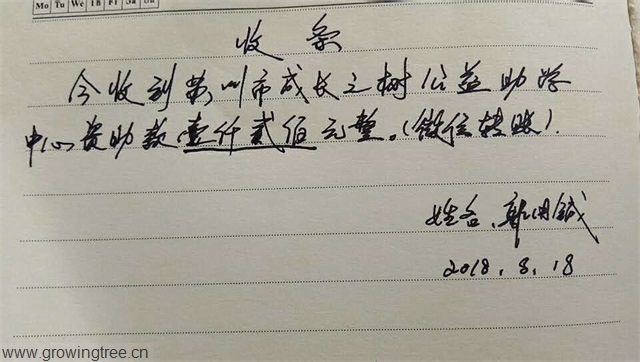 Mo Tu We Th Fr Sa Su
收条
今收到苏州市成长之树公益助学
中心资助款壹仟贰佰元整。(微信转账).
姓名
2018.8.18
www.growingtree.cn